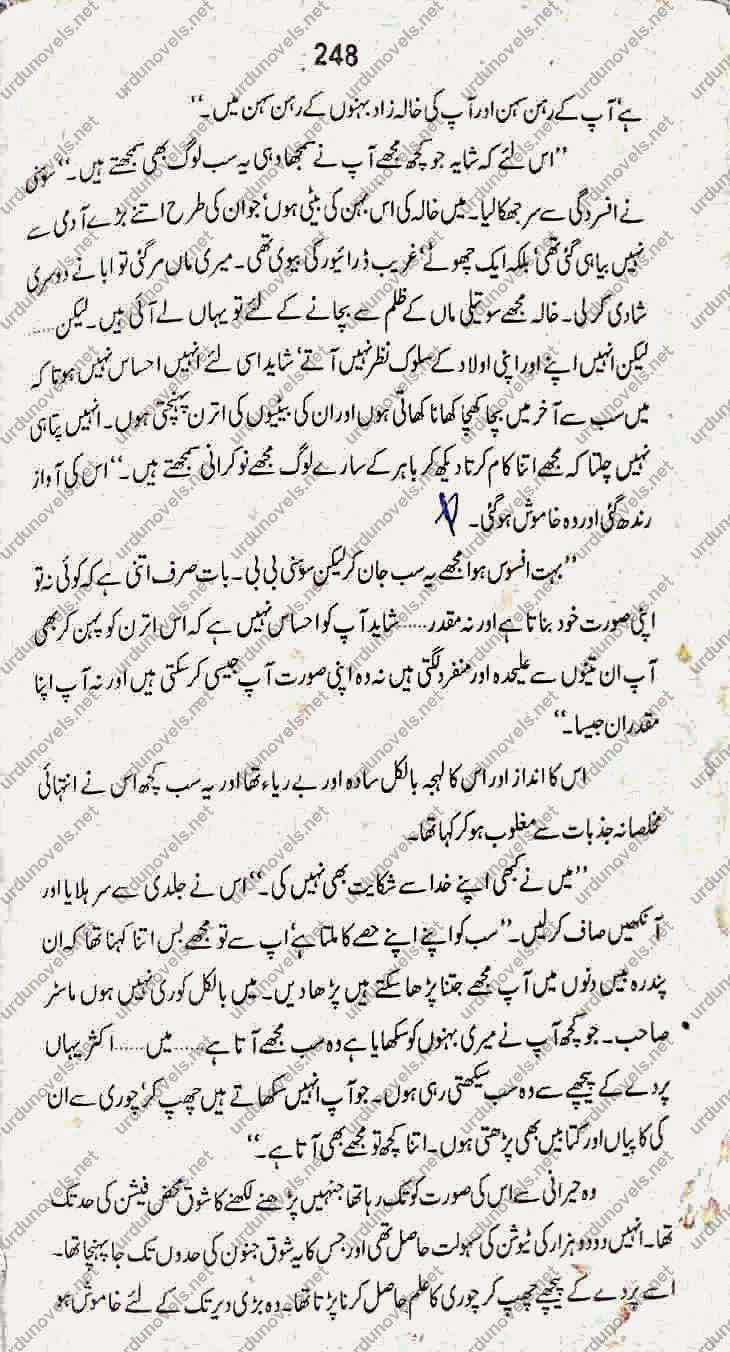 248
ہے‘ آپ کے رہن سہن اور آپ کی خالہ زاد بہنوں کے رہن سہن میں۔‘‘
’’اس لئے کہ شاید جو کچھ مجھے آپ نے سمجھا وہی یہ سب لوگ بھی سمجھتے ہیں۔‘‘ سوہنی
نے افسردگی سے سر جھکا لیا۔ میں خالہ کی اس بہن کی بیٹی ہوں‘ جو ان کی طرح اتنے بڑے آدمی سے
نہیں بیاہی گئی تھی‘ بلکہ ایک چھوٹے‘ غریب ڈرائیور کی بیوی تھی۔ میری ماں مر گئی تو ابا نے دوسری
شادی کر لی۔ خالہ مجھے سوتیلی ماں کے ظلم سے بچانے کے لئے تو یہاں لے آئی ہیں۔ لیکن......
لیکن انہیں اپنے اور اپنی اولاد کے سلوک نظر نہیں آتے‘ شاید اسی لئے انہیں احساس نہیں ہوتا کہ
میں سب سے آخر میں بچا کھچا کھانا کھاتی ہوں اور ان کی بیٹیوں کی اترن پہنچتی ہوں۔ انہیں پتا ہی
نہیں چلتا کہ مجھے اتنا کام کرتا دیکھ کر باہر کے سارے لوگ مجھے نوکرانی سمجھتے ہیں۔‘‘ اس کی آواز
رندھ گئی اور وہ خاموش ہو گئی۔
’’بہت افسوس ہوا مجھے یہ سب جان کر لیکن سوہنی بی بی۔ بات صرف اتنی ہے کہ کوئی نہ تو
اپنی صورت خود بناتا ہے اور نہ مقدر...... شاید آپ کو احساس نہیں ہے کہ اس اترن کو پہن کر بھی
آپ ان تینوں سے علیحدہ اور منفرد لگتی ہیں نہ وہ اپنی صورت آپ جیسی کر سکتی ہیں اور نہ آپ اپنا
مقدر ان جیسا۔‘‘
اس کا انداز اور اس کا لہجہ بالکل سادہ اور بے ریاء تھا اور یہ سب کچھ اس نے انتہائی
مخلصانہ جذبات سے مغلوب ہو کر کہا تھا۔
’’میں نے کبھی اپنے خدا سے شکایت بھی نہیں کی۔‘‘ اس نے جلدی سے سر ہلایا اور
آنکھیں صاف کر لیں۔ ’’سب کو اپنے اپنے حصے کا ملتا ہے‘ اپ سے تو مجھے بس اتنا کہنا تھا کہ ان
پندرہ بیس دنوں میں آپ مجھے جتنا پڑھا سکتے ہیں پڑھا دیں۔ میں بالکل کوری نہیں ہوں ماسٹر
صاحب۔ جو کچھ آپ نے میری بہنوں کو سکھایا ہے وہ سب مجھے آتا ہے...... میں...... اکثر یہاں
پردے کے پیچھے سے وہ سب سیکھتی رہی ہوں۔ جو آپ انہیں سکھاتے ہیں چھپ کر‘ چوری سے ان
کی کاپیاں اور کتابیں بھی پڑھتی ہوں۔ اتنا کچھ تو مجھے بھی آتا ہے۔‘‘
وہ حیرانی سے اس کی صورت کو تک رہا تھا جنہیں پڑھنے لکھنے کا شوق محض فیشن کی حد تک
تھا۔ انہیں دو دو ہزار کی ٹیوشن کی سہولت حاصل تھی اور جس کا یہ شوق جنون کی حدوں تک جا پہنچا تھا۔
اسے پردے کے پیچھے چھپ کر چوری کا علم حاصل کرنا پڑتا تھا۔ وہ بڑی دیر تک کے لئے خاموش ہو
urdunovels.net